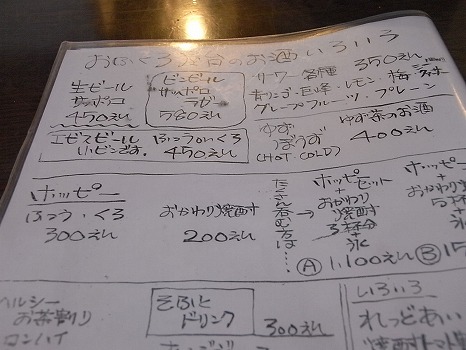 おふくろ自自のお酒いろいろ
生ビール
サッポロ
450えん
ビンビール
サッポロ
ラガー
580えん
サワー各種 350えん
青りんご・巨峰・レモン・梅
グレープフルーツ・プレーン
エビスビール ふつう・くろ
小ビンです。 450えん
ゆず
ぼうず
(HOT.COLD)
ゆず茶のお酒
400えん
ホッピー
ふつう・くろ
300えん
おかわり焼酎
200えん
たくさん呑む方は…
→
ホッピーセット
+
おかわり
焼酎
3杯分
+
氷
Ⓐ 1,100えん
ホッピ
+
おかわり
5杯
+
氷
Ⓑ 15
ヘルシー
お茶割り
コンハイ
そふと
ドリンク
300えん
いろいろ
れっどあい
焼酎トマト